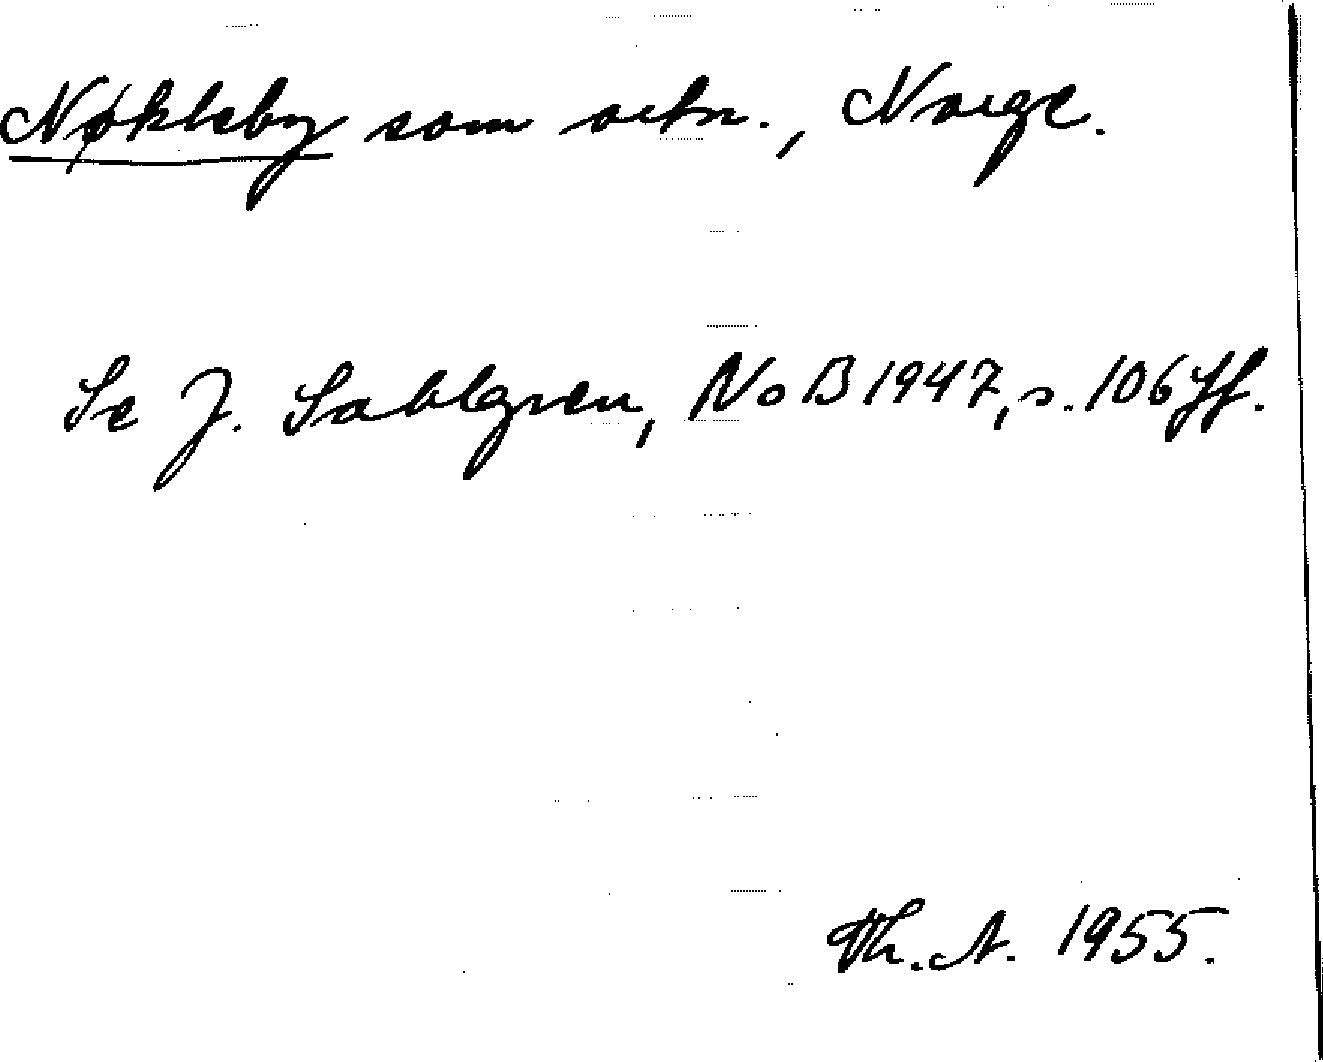 Nøkleby som ortn., Norge.
Se J. Sahlgren, NoB 1947, s. 106 ff.
Th. A. 1955.